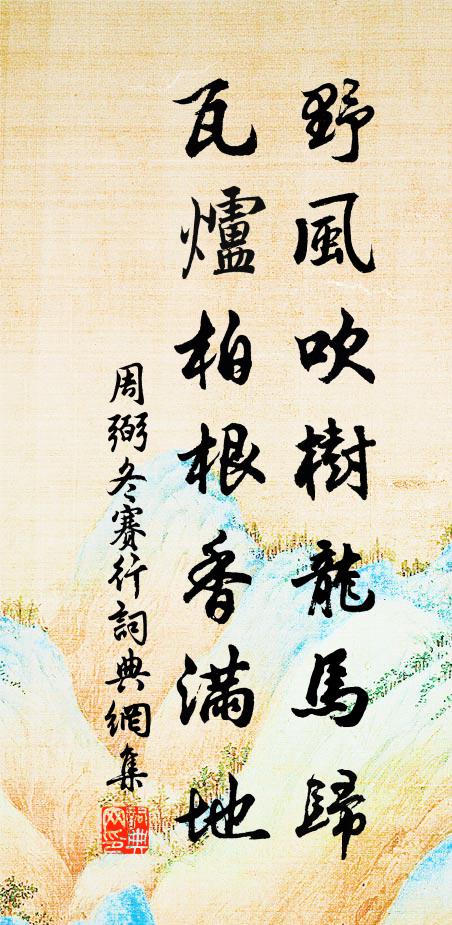 野風吹樹龍馬歸
瓦爐柏根香滿地
周弼冬賽行詞典網集
詞典網印